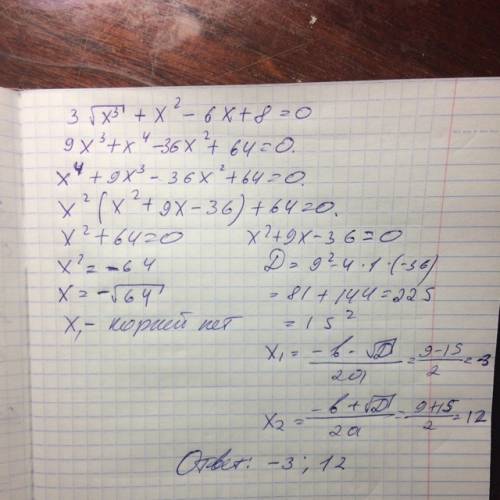 3√x³ + x² - 6x + 8 = 0
9x³ + x⁴ - 36x² + 64 = 0.
x⁴ + 9x³ - 36x² + 64 = 0.
x² (x² + 9x - 36) + 64 = 0.
x² + 64 = 0
x² = -64
x = -√64
x₁ - корней нет
x² + 9x - 36 = 0
D = 9² - 4 · 1 · (-36)
= 81 + 144 = 225
= 15²
x₁ = (-b - √D)/2a = (9-15)/2 = -3
x₂ = (-b + √D)/2a = (9+15)/2 = 12
Ответ: -3; 12